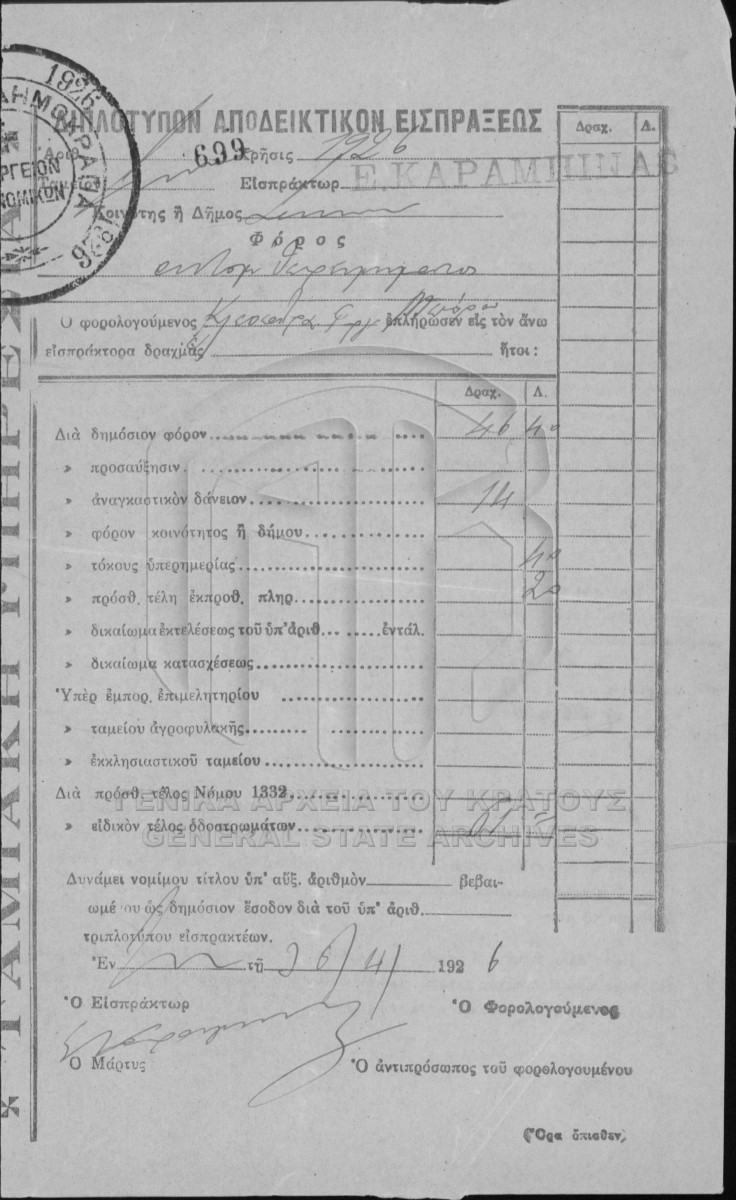 1925
ΔΗΜΟΚΡΑΤΙΑ
1926
ΔΙΠΛΟΤΥΠΟΝ ΑΠΟΔΕΙΚΤΙΚΟΝ ΕΙΣΠΡΑΞΕΩΣ
Δραχ. Λ.
Ἀριθ. 699 Χρῆσις 1926
Ταμεῖον Εἰσπράκτωρ Ε. ΚΑΡΑΜΠΙΝΑΣ
Κοινότης ἢ Δῆμος
Φόρος
Ὁ φορολογούμενος ἐπλήρωσεν εἰς τὸν ἄνω
εἰσπράκτορα δραχμὰς ἤτοι :
Δραχ. Λ.
Διὰ δημόσιον φόρον 46 40
» προσαύξησιν
» ἀναγκαστικὸν δάνειον 14
» φόρον κοινότητος ἢ δήμου
» τόκους ὑπερημερίας 40
» πρόσθ. τέλη ἐκπροθ. πληρ. 20
» δικαίωμα ἐκτελέσεως τοῦ ὑπ' ἀριθ. ἐντάλ.
» δικαίωμα κατασχέσεως
Ὑπὲρ ἐμπορ. ἐπιμελητηρίου
» ταμείου ἀγροφυλακῆς
» ἐκκλησιαστικοῦ ταμείου
Διὰ πρόσθ. τέλος Νόμου 1332
ΓΕΝΙΚΑ ΑΡΧΕΙΑ ΤΟΥ ΚΡΑΤΟΥΣ
» εἰδικὸν τέλος ὁδοστρωμάτων 61
GENERAL STATE ARCHIVES
Δυνάμει νομίμου τίτλου ὑπ' αὔξ. ἀριθμὸν βεβαι-
ωμένου ὡς δημόσιον ἔσοδον διὰ τοῦ ὑπ' ἀριθ.
τριπλοτύπου εἰσπρακτέων.
Ἐν τῇ 26/4/ 1926
Ὁ Εἰσπράκτωρ Ὁ Φορολογούμενος
Ὁ Μάρτυς Ὁ ἀντιπρόσωπος τοῦ φορολογουμένου
(Ὅρα ὄπισθεν)